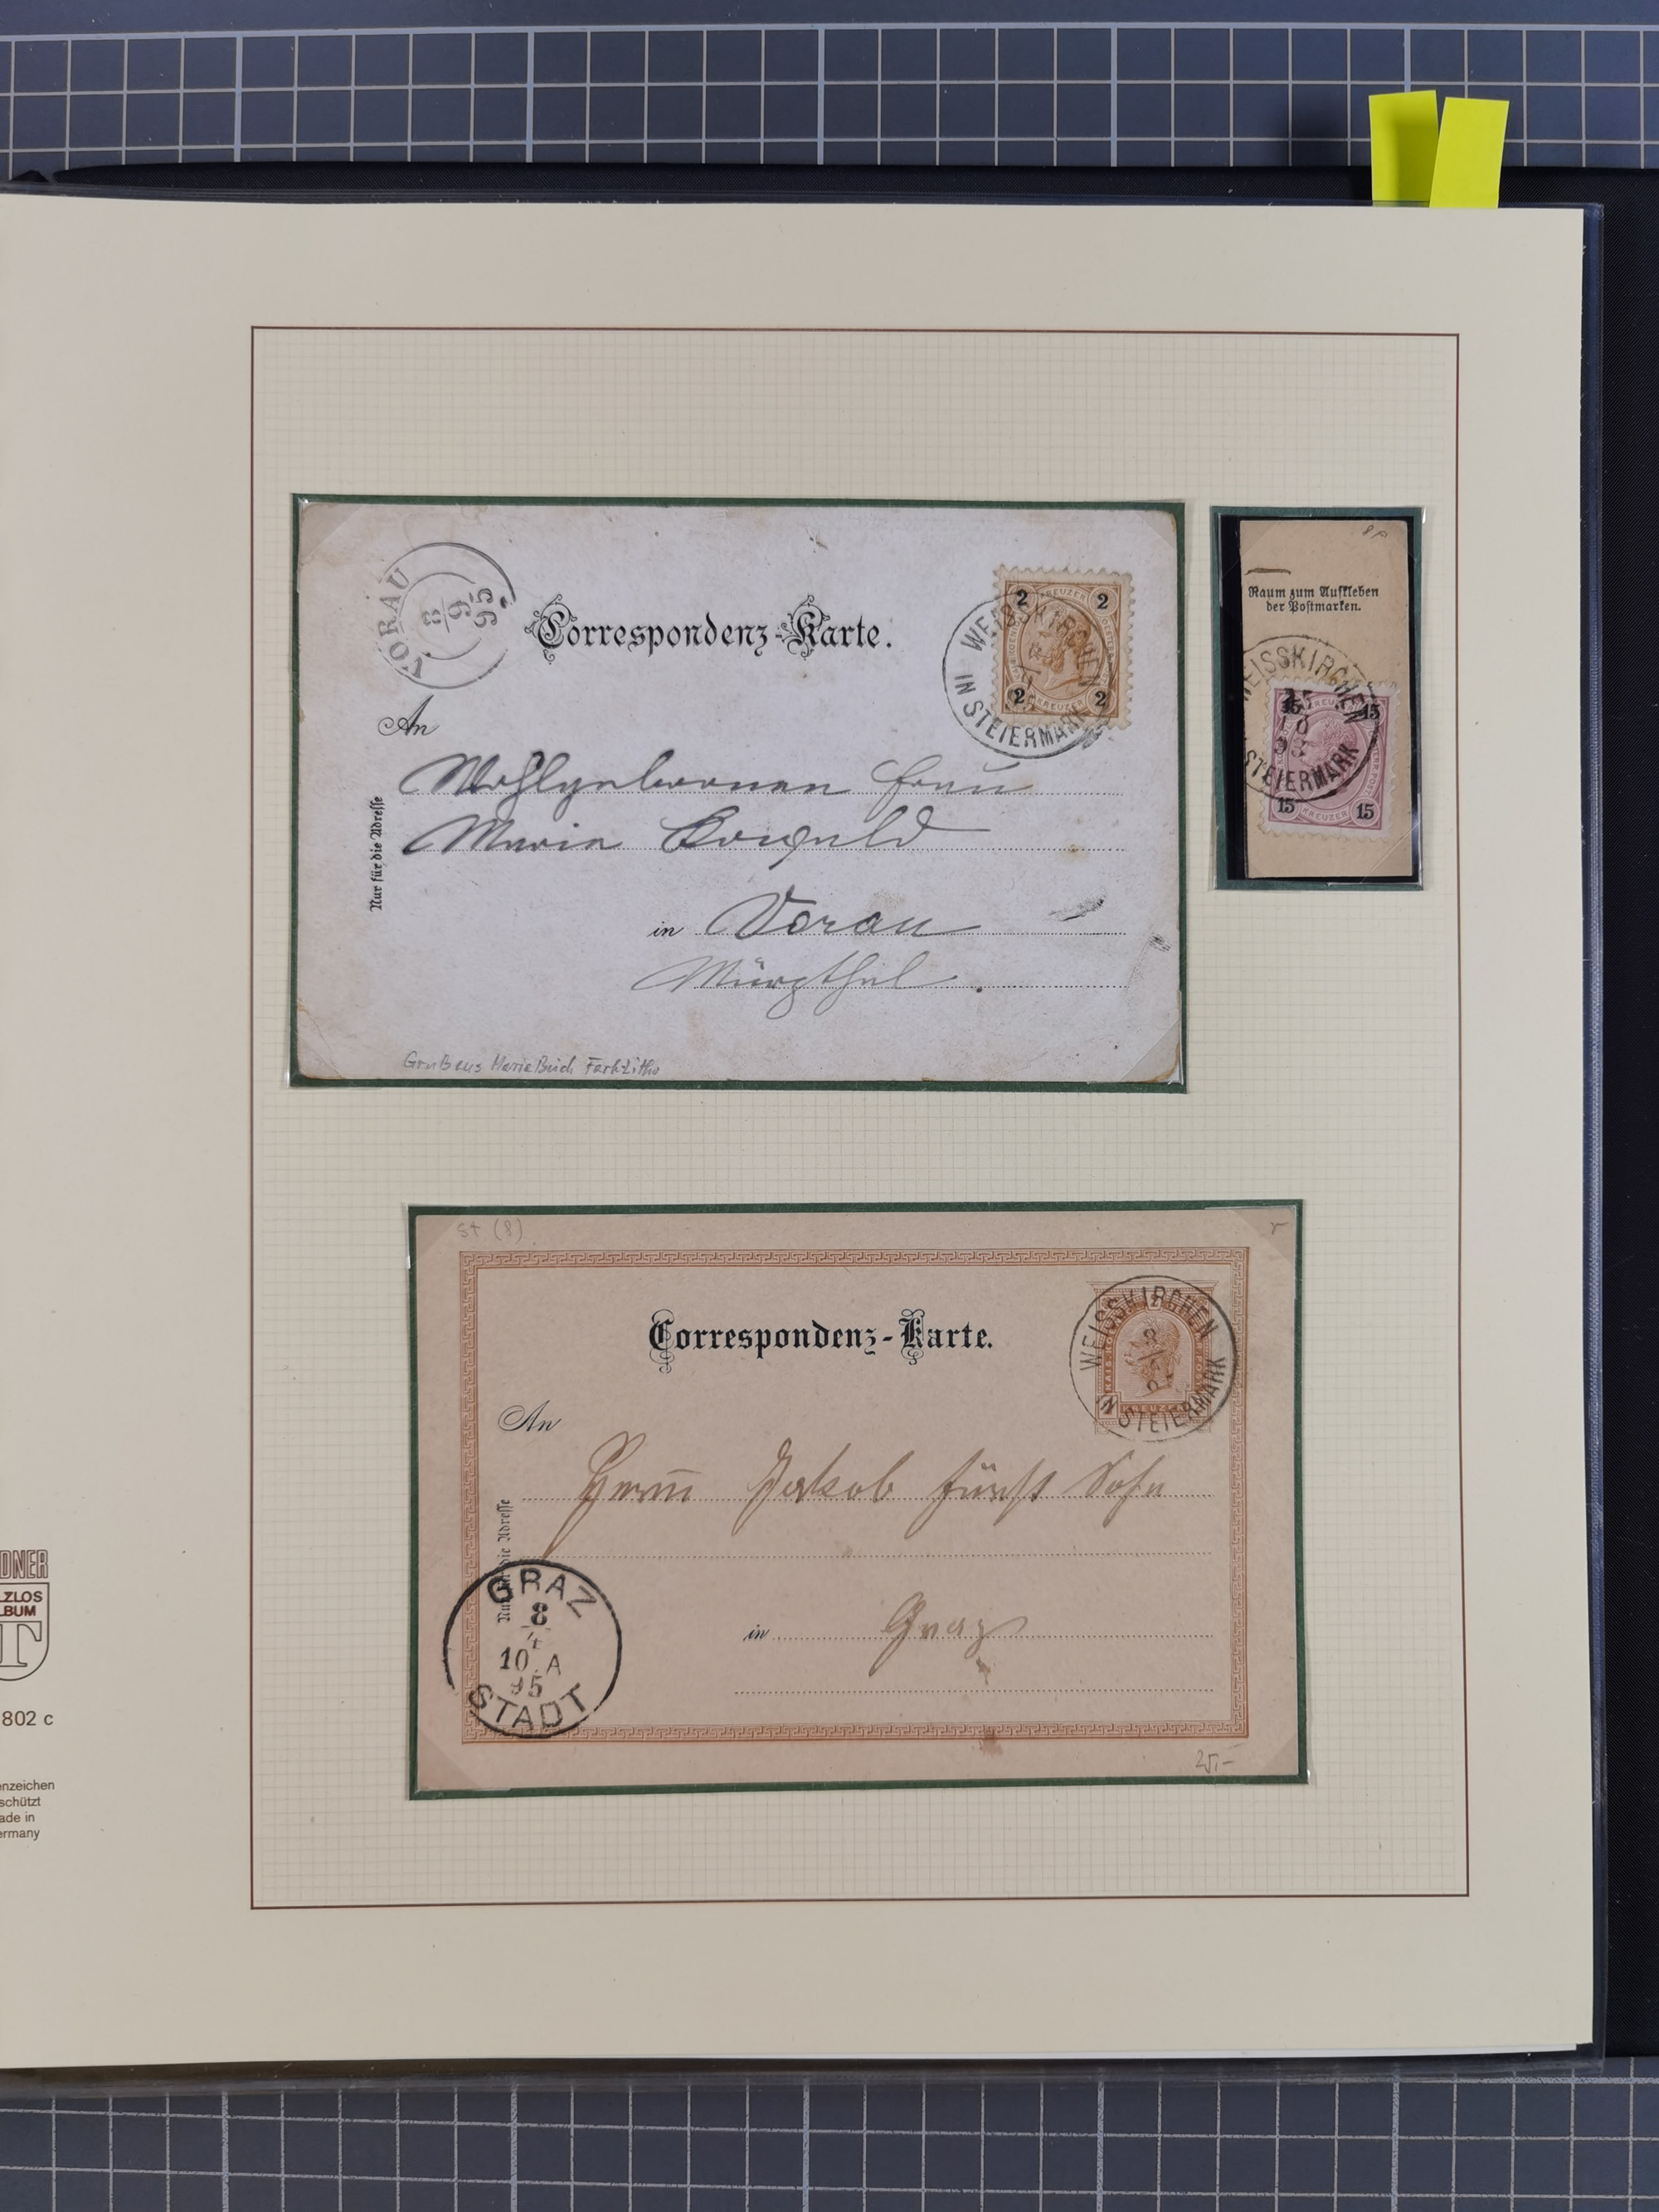 VORAU
8
9
95
Correspondenz-Karte.
2 KREUZER 2
2 KREUZER 2
WEISSKIRCHEN
IN STEIERMARK
An
Wohlgeborenen Frau
Maria
in Vorau
Mürzthal.
Nur für die Adresse
Gruß aus Maria Buch Farblitho
Raum zum Aufkleben
der Postmarken.
WEISSKIRCHEN
STEIERMARK
15 15
15 KREUZER 15
St (8)
Correspondenz-Karte.
WEISSKIRCHEN
IN STEIERMARK
An
Herrn Jakob Fürst Sohn
in Graz
Nur für die Adresse
GRAZ
8
10 A
95
STADT
25,-
DNER
ZLOS
LBUM
T
802 c
enzeichen
schützt
ade in
ermany